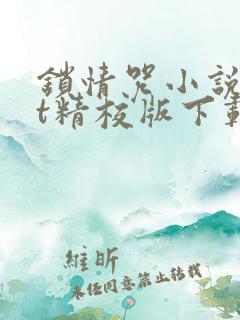 鎖情咒小說
t精校版下載
維昕
未经同意禁止转载